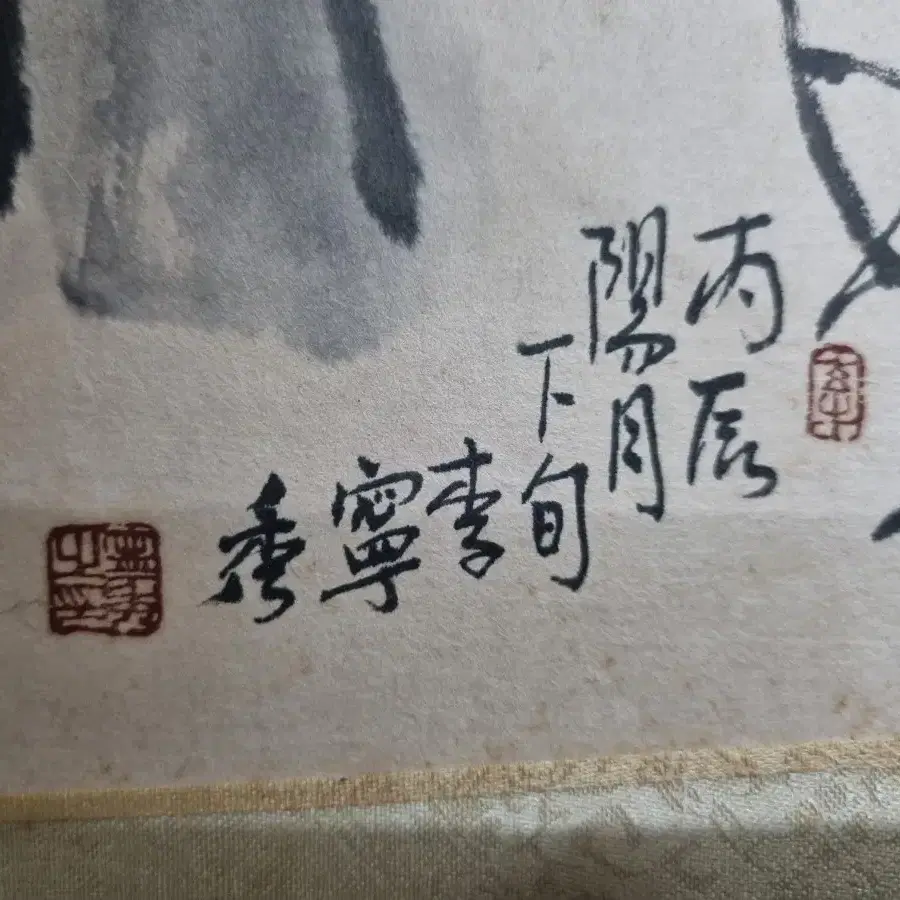 丙辰
陽月
下旬
李
寧
之印